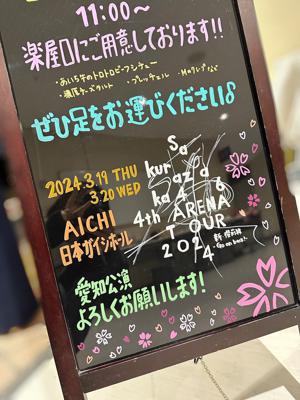 11:00～
楽屋口にご用意しております!!
・あいち牛のトロトロビーフシチュー
ぜひ足をお運びください
2024.3.19 THU
3.20 WED
AICHI
日本ガイシホール
Sa
kurazaka
4th ARENA
TOUR
2024
新・櫻前線
-Go on back?-
愛知公演
よろしくお願いします!